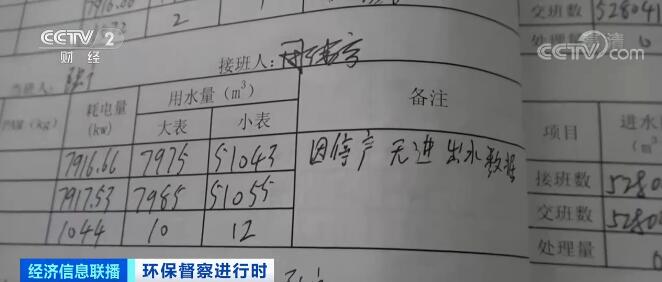 CCTV 2
财经
CCTV 高清
7916.
2
交班数 528041
处理量
0
接班人:
当班人:
PAM (kg)
耗电量 (kw)
用水量 (m³)
备注
大表
小表
7916.66 7975 51043 因停产无进出水数据
7917.53 7985 51055
1044 10 12
项目
进水
(m³
接班数 5280
交班数 5280
处理量 0
经济信息联播 环保督察进行时